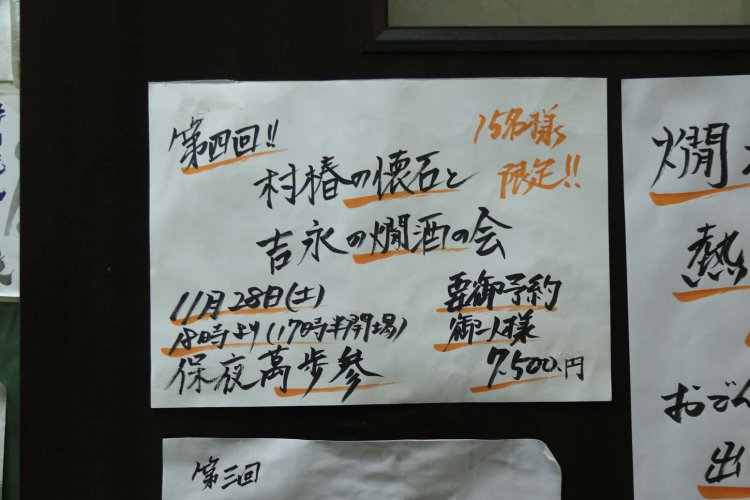 第四回!!
15名様
限定!!
村椿の懐石と
吉永の燗酒の会
11月28日(土)
18時より(17時半開場)
保夜萬歩参
要御予約
御一人様
7,500円
第三回
燗
熱
おでん
出